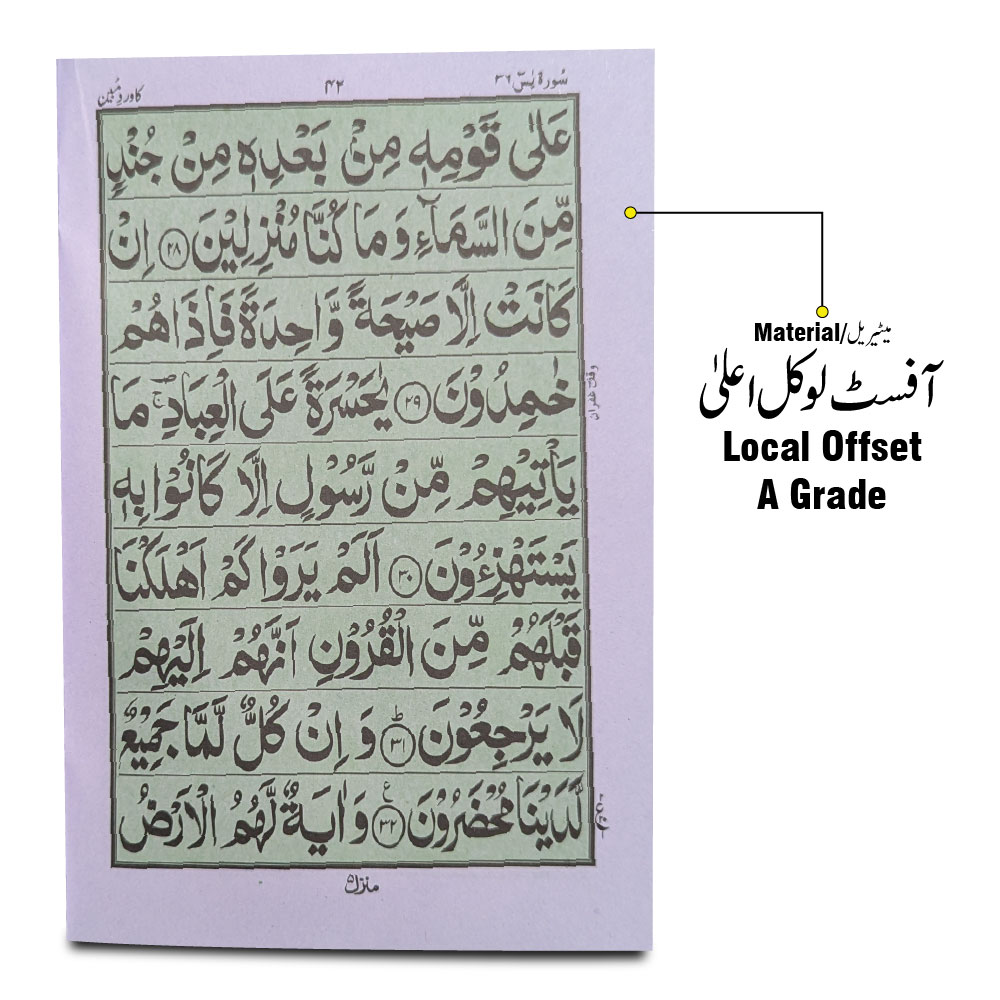 سُورَةُ يٰسٓ ٣٦
٤٢
عَلٰى قَوْمِهٖ مِنْۢ بَعْدِهٖ مِنْ جُنْدٍ
مِّنَ السَّمَآءِ وَ مَا كُنَّا مُنْزِلِيْنَ ۝٢٨ اِنْ
كَانَتْ اِلَّا صَيْحَةً وَّاحِدَةً فَاِذَا هُمْ
خٰمِدُوْنَ ۝٢٩ يٰحَسْرَةً عَلَى الْعِبَادِ ۚ مَا
يَاْتِيْهِمْ مِّنْ رَّسُوْلٍ اِلَّا كَانُوْا بِهٖ
يَسْتَهْزِءُوْنَ ۝٣٠ اَلَمْ يَرَوْا كَمْ اَهْلَكْنَا
قَبْلَهُمْ مِّنَ الْقُرُوْنِ اَنَّهُمْ اِلَيْهِمْ
لَا يَرْجِعُوْنَ ؕ۝٣١ وَ اِنْ كُلٌّ لَّمَّا جَمِيْعٌ
لَّدَيْنَا مُحْضَرُوْنَ ۝٣٢ ع وَ اٰيَةٌ لَّهُمُ الْاَرْضُ
منزل ۵
Material/میٹیریل
آفسٹ لوکل اعلیٰ
Local Offset
A Grade